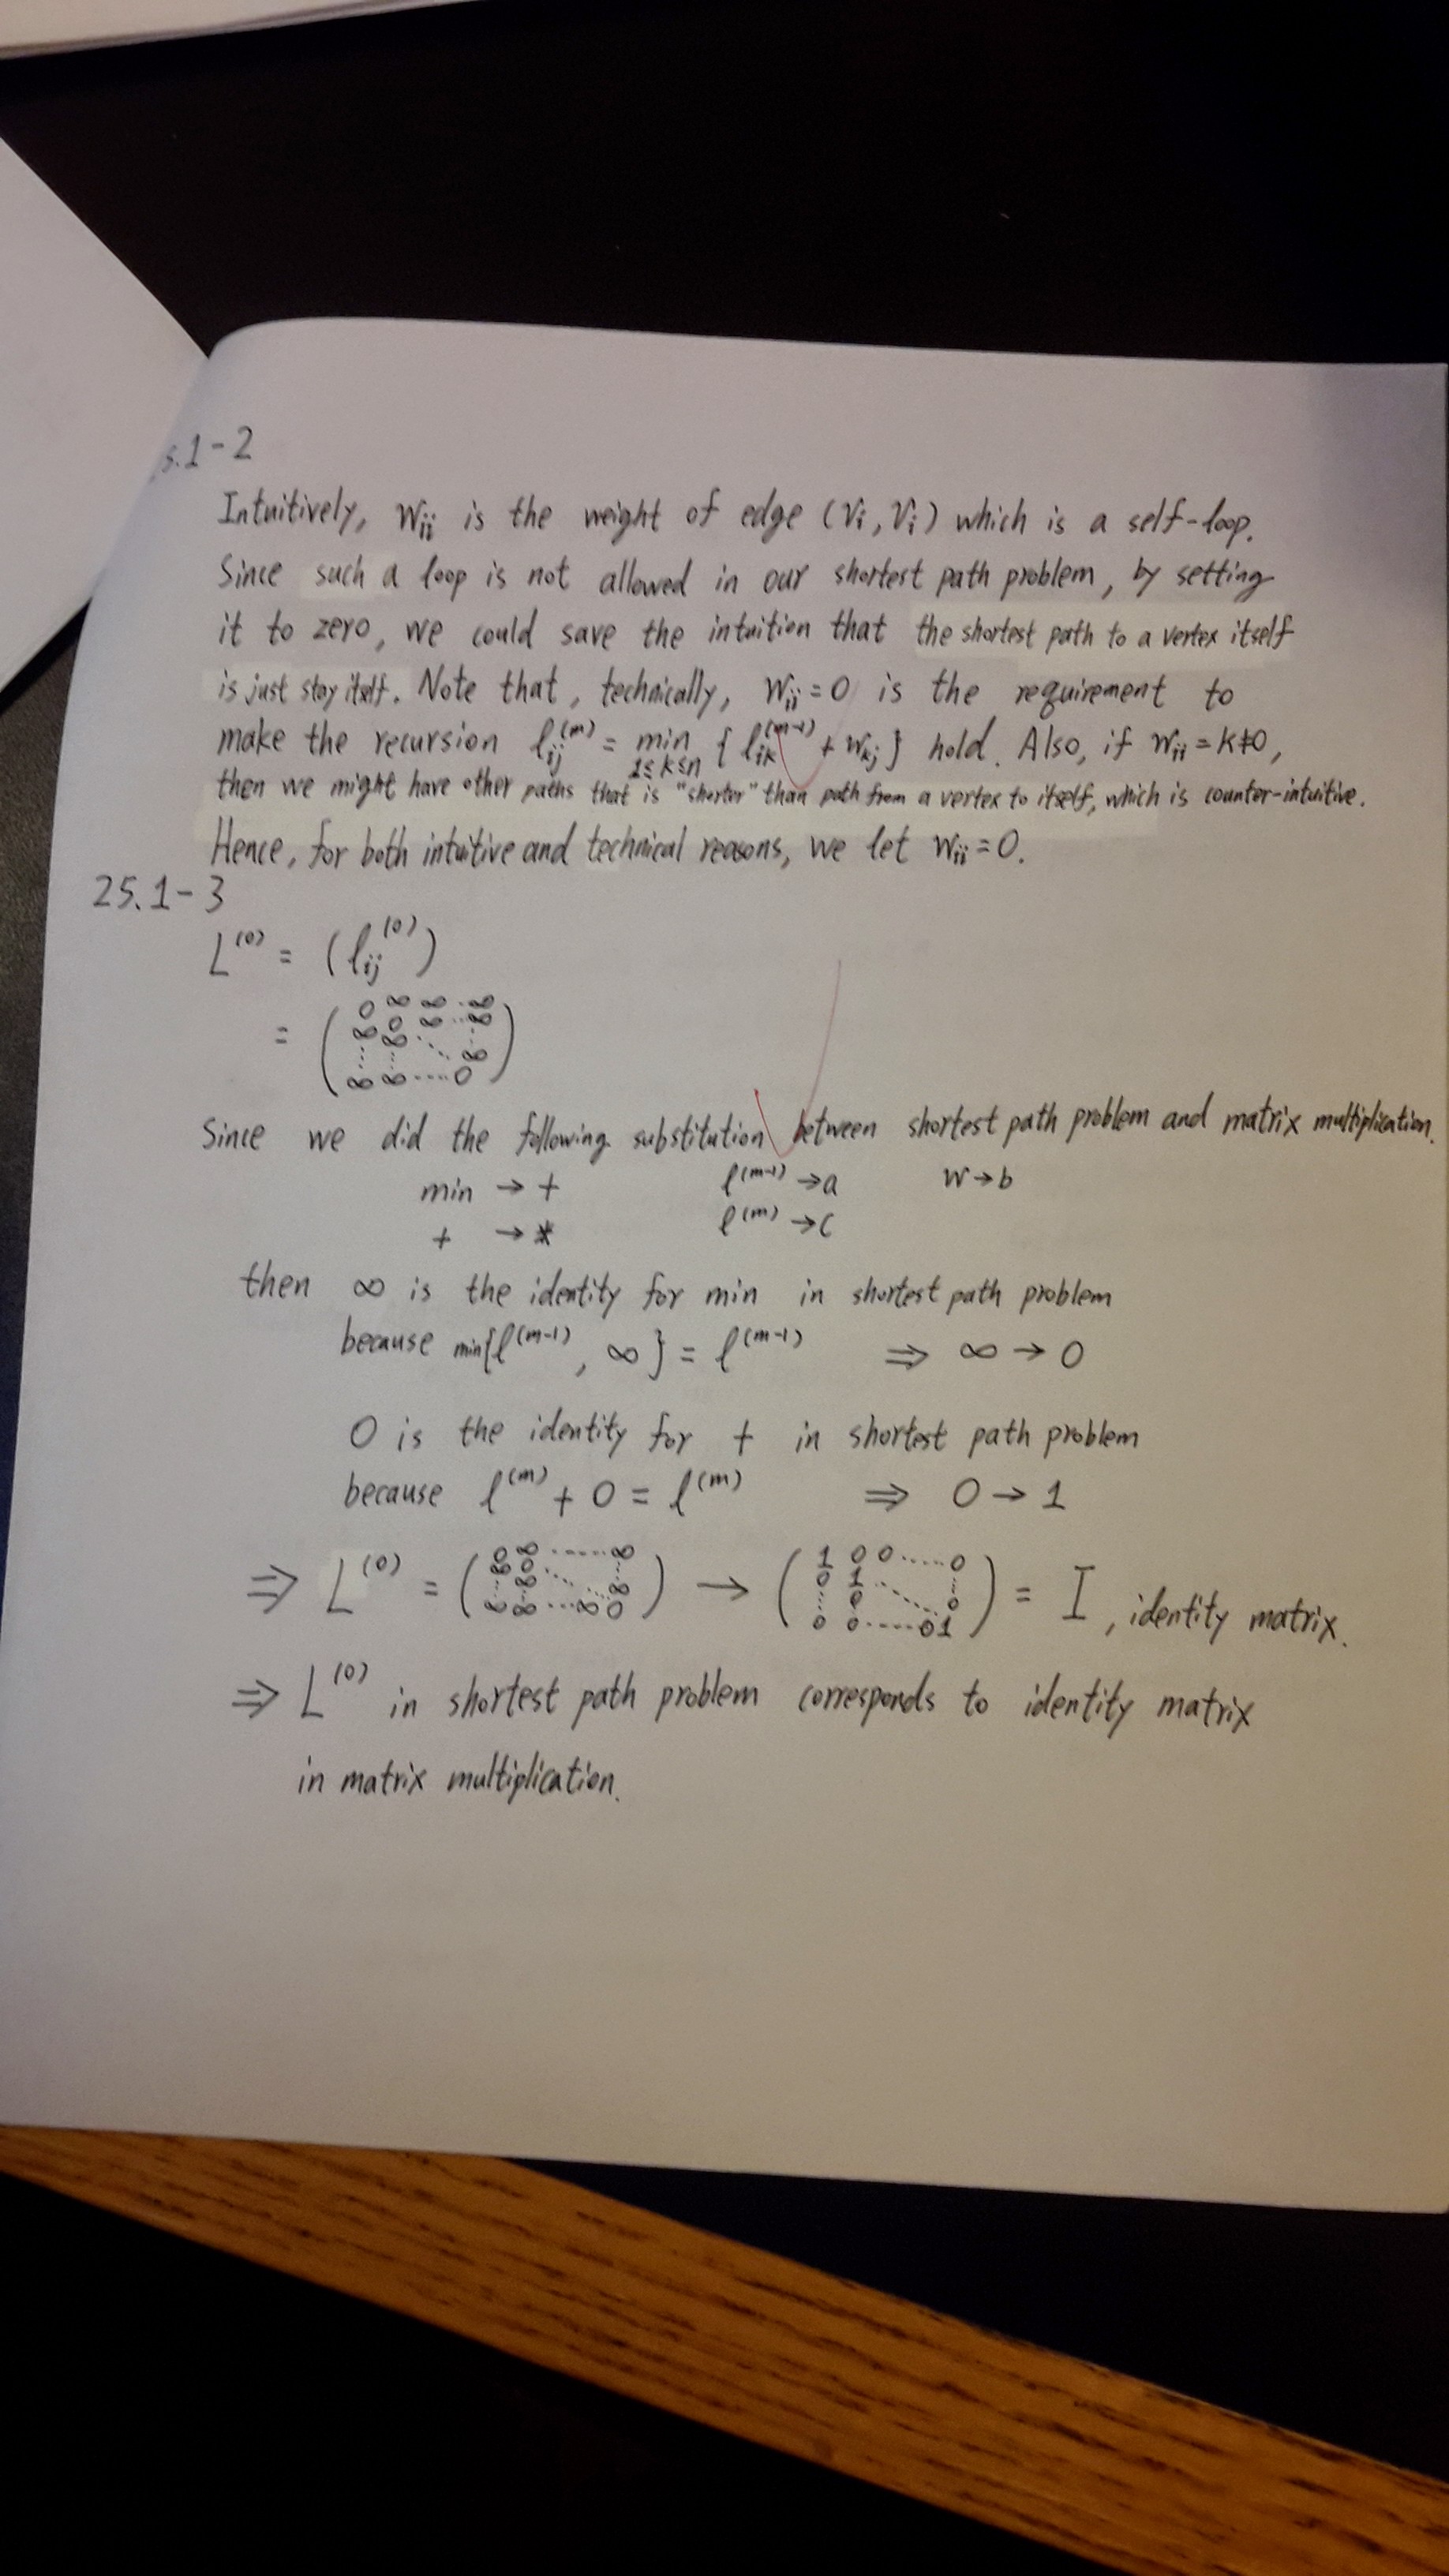 5.1-2
Intuitively, Wii is the weight of edge (Vi, Vi) which is a self-loop.
Since such a loop is not allowed in our shortest path problem, by setting
it to zero, we could save the intuition that the shortest path to a vertex itself
is just stay itself. Note that, technically, Wii = 0 is the requirement to
make the recursion lij^(m) = min 1≤k≤n { lik^(m-1) + wkj } hold. Also, if wii = k≠0,
then we might have other paths that is "shorter" than path from a vertex to itself, which is counter-intuitive.
Hence, for both intuitive and technical reasons, we let wii = 0.
25.1-3
L^(0) = (lij^(0))
= ( 0 ∞ ∞ ... ∞
∞ 0 ∞ ... ∞
⋮ ∞ ⋱ ∞
∞ ∞ ---- 0 )
Since we did the following substitution between shortest path problem and matrix multiplication.
min → + l^(m-1) → a W → b
+ → * l^(m) → c
then ∞ is the identity for min in shortest path problem
because min{l^(m-1), ∞} = l^(m-1) ⇒ ∞ → 0
0 is the identity for + in shortest path problem
because l^(m) + 0 = l^(m) ⇒ 0 → 1
⇒ L^(0) = ( 0 ∞ ------ ∞ ∞ 0 ⋱ ⋮ ∞ ∞ ∞ ∞ ... ∞ 0 ) → ( 1 0 0 ..... 0 0 1 ⋱ ⋮ 0 0 0 0 ---- 0 1 ) = I, identity matrix.
⇒ L^(0) in shortest path problem corresponds to identity matrix
in matrix multiplication.